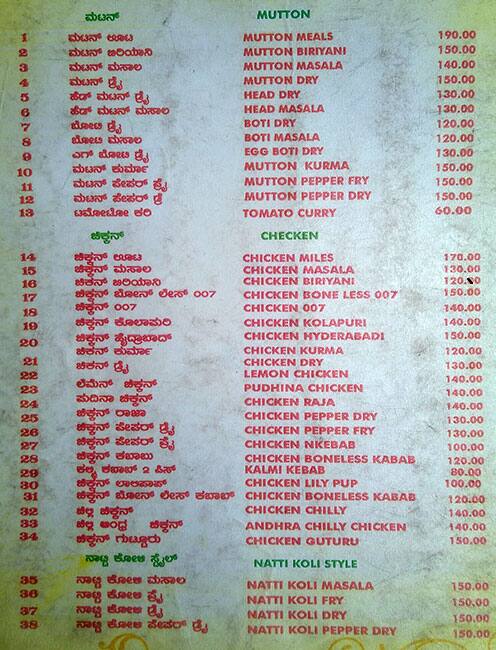 ಮಟನ್ MUTTON
1 ಮಟನ್ ಊಟ MUTTON MEALS 190.00
2 ಮಟನ್ ಬಿರಿಯಾನಿ MUTTON BIRIYANI 150.00
3 ಮಟನ್ ಮಸಾಲ MUTTON MASALA 140.00
4 ಮಟನ್ ಡ್ರೈ MUTTON DRY 150.00
5 ಹೆಡ್ ಮಟನ್ ಡ್ರೈ HEAD DRY 130.00
6 ಹೆಡ್ ಮಟನ್ ಮಸಾಲ HEAD MASALA 130.00
7 ಬೋಟಿ ಡ್ರೈ BOTI DRY 120.00
8 ಬೋಟಿ ಮಸಾಲ BOTI MASALA 120.00
9 ಎಗ್ ಬೋಟಿ ಡ್ರೈ EGG BOTI DRY 130.00
10 ಮಟನ್ ಕುರ್ಮಾ MUTTON KURMA 150.00
11 ಮಟನ್ ಪೇಪರ್ ಫ್ರೈ MUTTON PEPPER FRY 150.00
12 ಮಟನ್ ಪೇಪರ್ ಡ್ರೈ MUTTON PEPPER DRY 150.00
13 ಟಮೋಟೋ ಕರಿ TOMATO CURRY 60.00
ಚಿಕ್ಕನ್ CHECKEN
14 ಚಿಕ್ಕನ್ ಊಟ CHICKEN MILES 170.00
15 ಚಿಕ್ಕನ್ ಮಸಾಲ CHICKEN MASALA 130.00
16 ಚಿಕ್ಕನ್ ಬಿರಿಯಾನಿ CHICKEN BIRIYANI 120.00
17 ಚಿಕ್ಕನ್ ಬೋನ್ ಲೇಸ್ 007 CHICKEN BONE LESS 007 150.00
18 ಚಿಕ್ಕನ್ 007 CHICKEN 007 140.00
19 ಚಿಕ್ಕನ್ ಕೊಲಾಪುರಿ CHICKEN KOLAPURI 140.00
20 ಚಿಕ್ಕನ್ ಹೈದ್ರಾಬಾದ್ CHICKEN HYDERABADI 150.00
21 ಚಿಕ್ಕನ್ ಕುರ್ಮಾ CHICKEN KURMA 120.00
22 ಚಿಕ್ಕನ್ ಡ್ರೈ CHICKEN DRY 130.00
LEMON CHICKEN 140.00
23 ಲೆಮೆನ್ ಚಿಕ್ಕನ್ PUDHINA CHICKEN 140.00
24 ಪುದಿನಾ ಚಿಕ್ಕನ್ CHICKEN RAJA 140.00
25 ಚಿಕ್ಕನ್ ರಾಜಾ CHICKEN PEPPER DRY 130.00
26 ಚಿಕ್ಕನ್ ಪೇಪರ್ ಡ್ರೈ CHICKEN PEPPER FRY 130.00
27 ಚಿಕ್ಕನ್ ಪೇಪರ್ ಫ್ರೈ CHICKEN NKEBAB 100.00
28 ಚಿಕ್ಕನ್ ಕಬಾಬು CHICKEN BONELESS KABAB 120.00
29 ಕಲ್ಮಿ ಕಬಾಬ್ 2 ಪಿಸ್ KALMI KEBAB 80.00
30 ಚಿಕ್ಕನ್ ಲಾಲಿಪಾಪ್ CHICKEN LILY PUP 100.00
31 ಚಿಕ್ಕನ್ ಬೋನ್ ಲೇಸ್ ಕಬಾಬ್ CHICKEN BONELESS KABAB 120.00
32 ಚಿಲ್ಲಿ ಚಿಕ್ಕನ್ CHICKEN CHILLY 140.00
33 ಚಿಲ್ಲಿ ಆಂಧ್ರ ಚಿಕ್ಕನ್ ANDHRA CHILLY CHICKEN 140.00
34 ಚಿಕ್ಕನ್ ಗುಟ್ಟೂರು CHICKEN GUTURU 150.00
ನಾಟ್ಟಿ ಕೋಳಿ ಸ್ಟೈಲ್ NATTI KOLI STYLE
35 ನಾಟ್ಟಿ ಕೋಳಿ ಮಸಾಲ NATTI KOLI MASALA 150.00
36 ನಾಟ್ಟಿ ಕೋಳಿ ಫ್ರೈ NATTI KOLI FRY 150.00
37 ನಾಟ್ಟಿ ಕೋಳಿ ಡ್ರೈ NATTI KOLI DRY 150.00
38 ನಾಟ್ಟಿ ಕೋಳಿ ಪೇಪರ್ ಡ್ರೈ NATTI KOLI PEPPER DRY 150.00